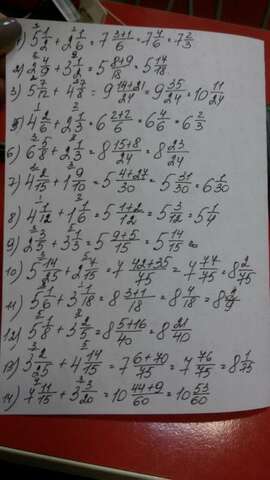 1) 5 1/2 + 2 1/6 = 7 3+1/6 = 7 4/6 = 7 2/3
2) 2 4/9 + 3 1/2 = 5 8+9/18 = 5 17/18
3) 5 7/12 + 4 7/8 = 9 14+21/24 = 9 35/24 = 10 11/24
5) 4 2/6 + 2 1/3 = 6 2+2/6 = 6 4/6 = 6 2/3
6) 6 5/8 + 2 1/3 = 8 15+8/24 = 8 23/24
7) 4 2/15 + 1 9/10 = 5 4+27/30 = 5 31/30 = 6 1/30
8) 4 1/12 + 1 1/6 = 5 1+2/12 = 5 3/12 = 5 1/4
9) 2 3/5 + 3 1/3 = 5 9+5/15 = 5 14/15
10) 5 14/25 + 2 7/15 = 7 42+35/75 = 7 77/75 = 8 2/75
11) 5 1/6 + 3 1/18 = 8 3+1/18 = 8 4/18 = 8 2/9
12) 5 1/8 + 3 2/5 = 8 5+16/40 = 8 21/40
13) 3 2/25 + 4 14/15 = 7 6+70/75 = 7 76/75 = 8 1/75
14) 7 11/15 + 3 3/20 = 10 44+9/60 = 10 53/60